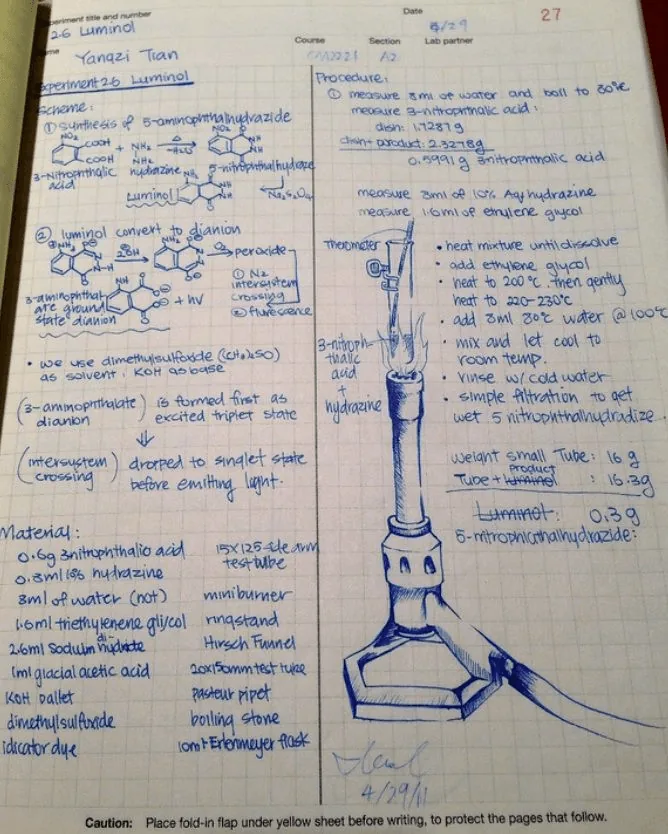 Experiment title and number
26 Luminol
Date
4/29
27
Name
Yangzi Tian
Course
Section
A2
Lab partner
Experiment 26 Luminol
Scheme:
① Synthesis of 5-aminophthalhydrazide
NO₂
COOH
COOH
+ NH₂
NH₂
Δ
-H₂O
NO₂
NH
NH
3-Nitrophthalic
acid
hydrazine
5-nitrophthalhydraze
Luminol
NH₂
NH
NH
Na₂S₂O₄
② luminol convert to dianion
NH₂
N-H
2OH
NH₂
O₂
peroxide
① N₂
intersystem
crossing
② fluresence
3-aminophthal
ate ground
state dianion
+ hν
• we use dimethylsulfoxide (CH₃)₂SO)
as solvent, KOH as base
(3-aminophthalate
dianion) is formed first as
excited triplet state
⇓
(intersystem
crossing) dropped to singlet state
before emitting light.
Material:
0.6g 3nitrophthalic acid
0.8ml 10% hydrazine
3ml of water (hot)
1.6ml triethylenene glycol
2.6ml Sodium dihydrate
1ml glacial acetic acid
KOH pallet
dimethylsulfoxide
idicator dye
15x125 side arm
test tube
miniburner
ringstand
Hirsch Funnel
20x150mm test tube
pasteur pipet
boiling stone
10ml Erlenmeyer flask
Procedure:
① measure 8ml of water and boil to 80°C
measure 3-nitrophthalic acid:
dish: 1.7287g
dish + product: 2.3278g
0.5991g 3nitrophthalic acid
measure 8ml of 10% Aq hydrazine
measure 1.6ml of ethylene glycol
Thermometer
3-nitroph
thalic
acid
+
hydrazine
• heat mixture until dissolve
• add ethylene glycol
• heat to 200°C. then gently
heat to 220-230°C
• add 8ml 80°C water @100°C
• mix and let cool to
room temp.
• rinse w/ cold water
• simple filtration to get
wet 5 nitrophthalhydradize.
Weight small Tube: 16g
Tube + luminol Product : 16.3g
Luminol: 0.3g
5-nitrophthalhydrazide:
4/29/11
Caution: Place fold-in flap under yellow sheet before writing, to protect the pages that follow.